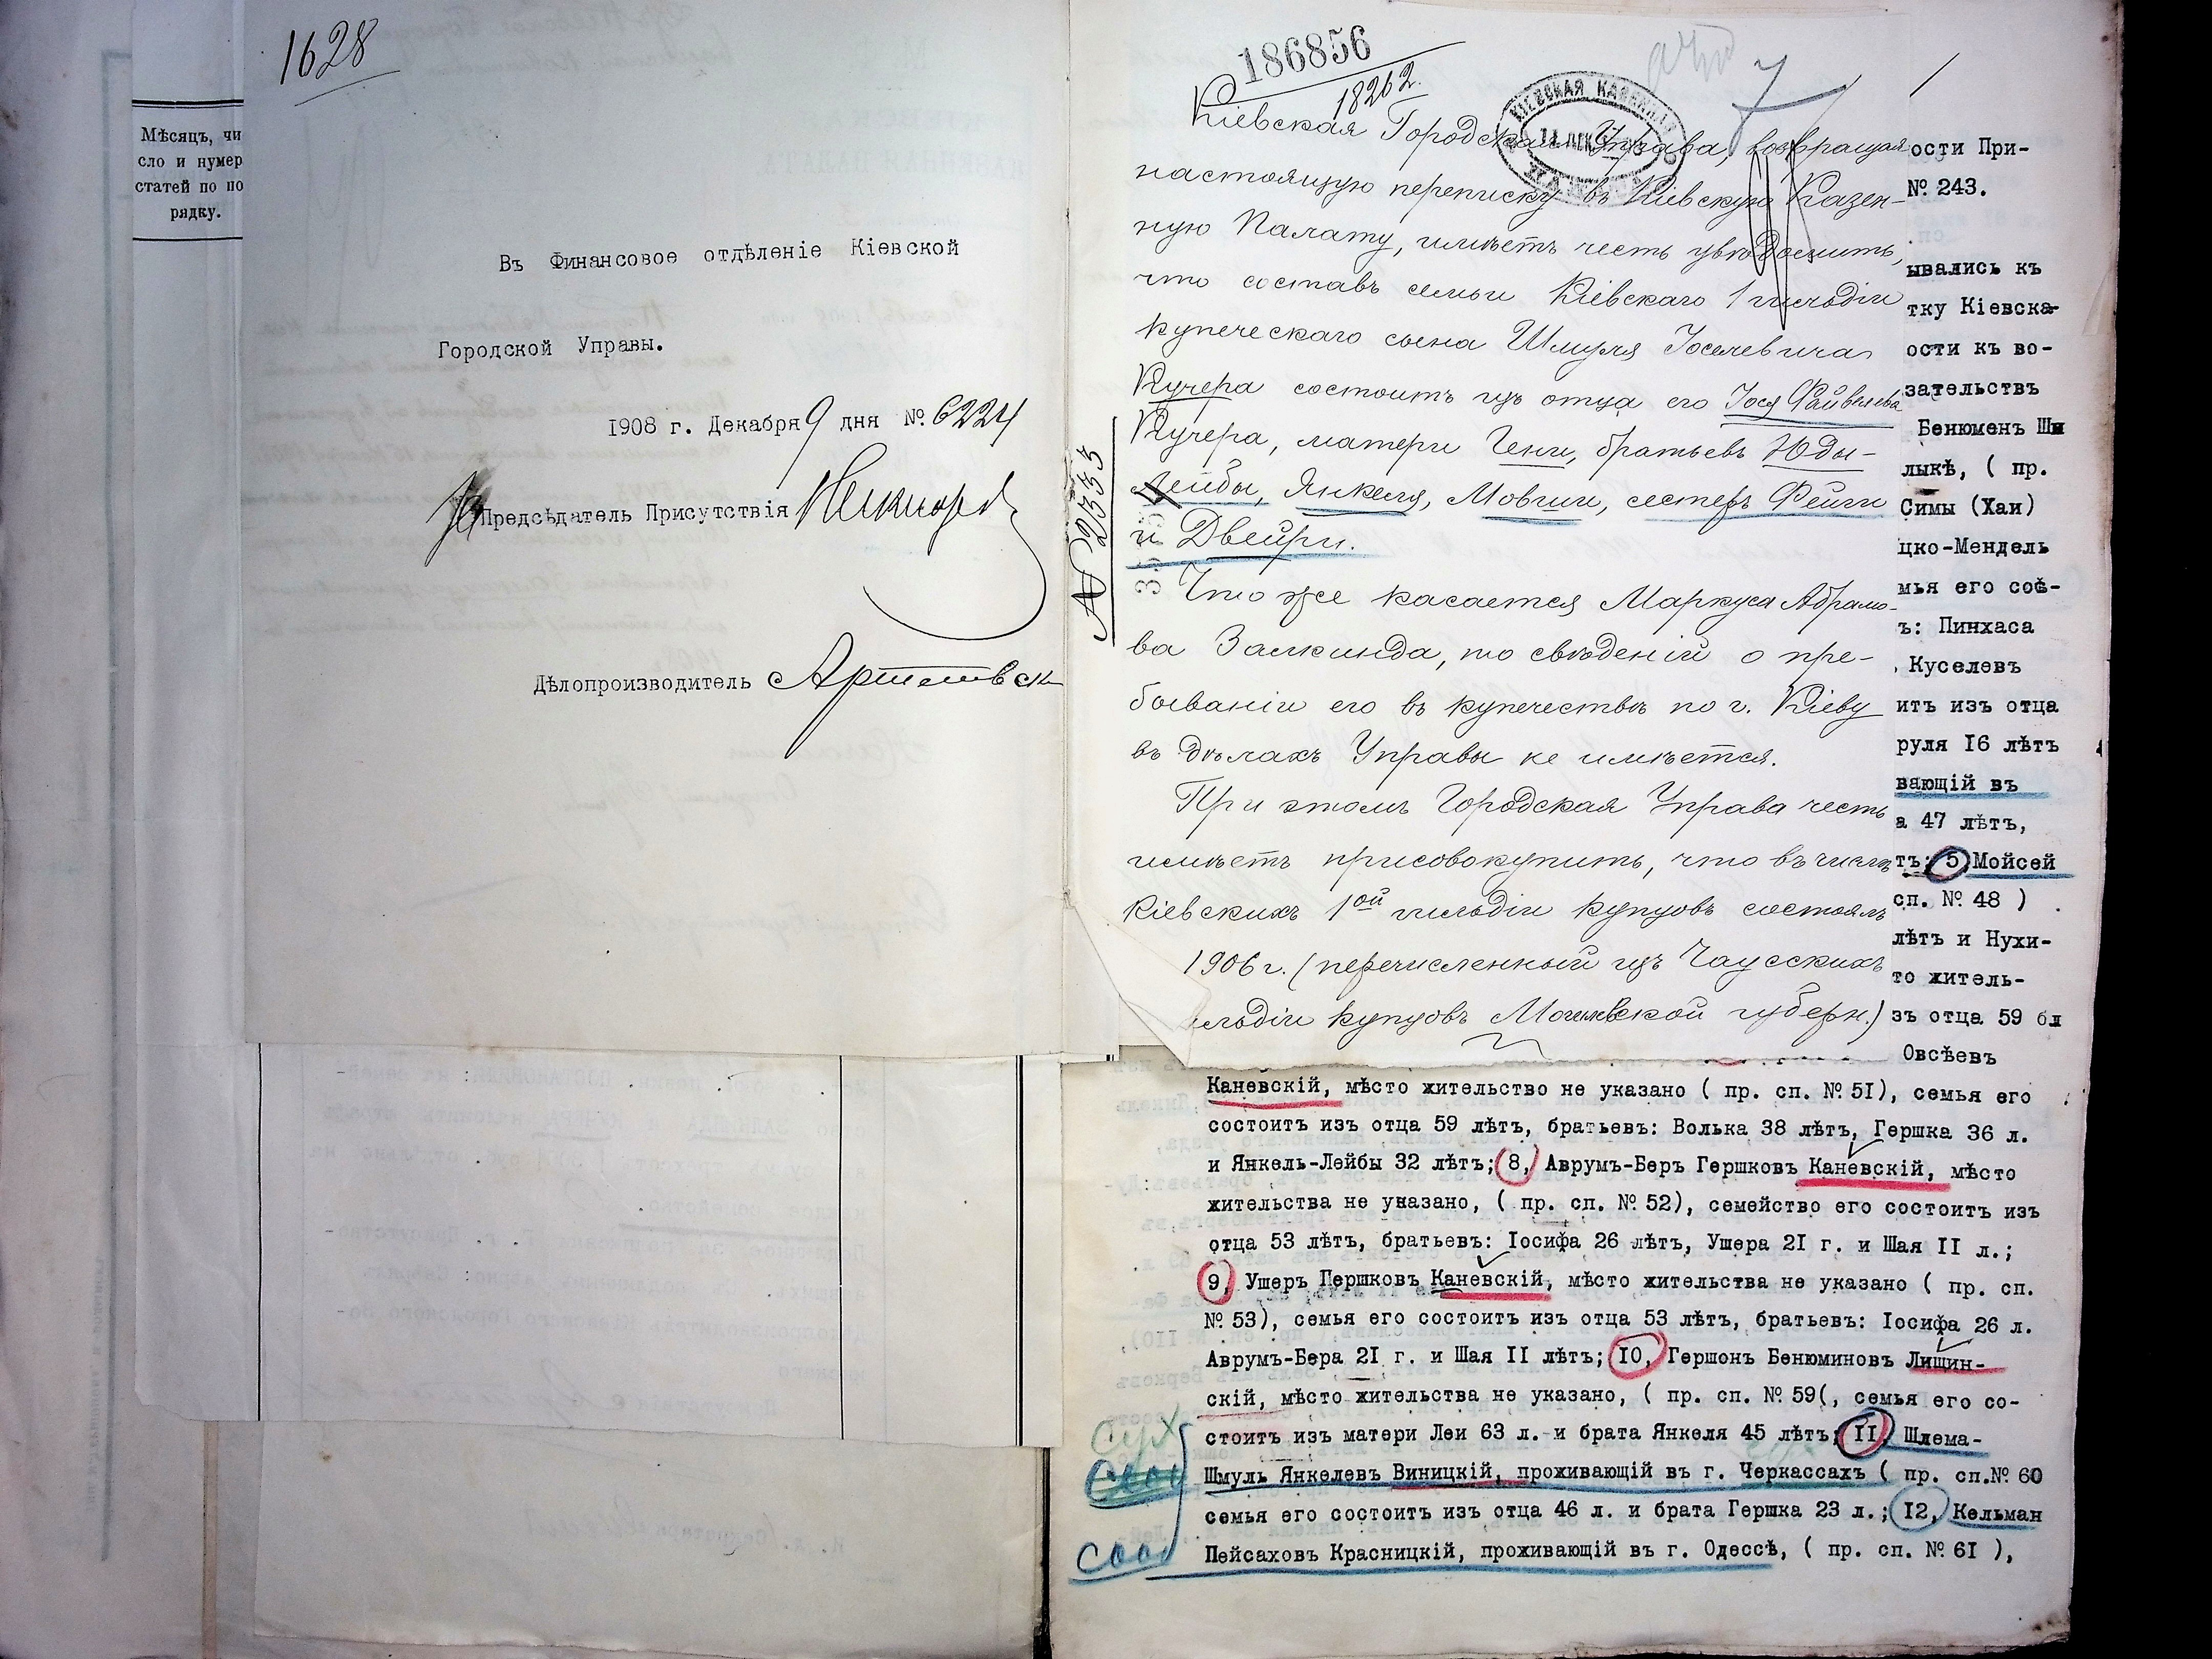 1628
Мѣсяцъ, чи
сло и нумер
статей по по
рядку.
Въ Финансовое отдѣленіе Кіевской
Городской Управы.
1908 г. Декабря 9 дня № 6224
Предсѣдатель Присутствія
Дѣлопроизводитель
186856
18262
7
Кіевская Городская Управа, возвращая
настоящую переписку въ Кіевскую Казен-
ную Палату, имѣетъ честь увѣдомить,
что составъ семьи Кіевскаго 1 гильдіи
купеческаго сына Шмуля Іоселевича
Кучера состоитъ изъ отца его Іося Файвелева
Кучера, матери Гени, братьевъ Юды-
Лейбы, Янкеля, Мовши, сестеръ Фейги
и Двейры.
№ 2333
Что же касается Маркуса Абрамо-
ва Залкинда, то свѣденій о пре-
бываніи его въ купечествѣ по г. Кіеву
въ дѣлахъ Управы не имѣется.
При этомъ Городская Управа честь
имѣетъ присовокупить, что въ числѣ
Кіевскихъ 1ой гильдіи купцовъ состоялъ
1906 г. (перечисленный изъ Чаусскихъ
ильдіи купцовъ Могилевской губерн.)
ости При-
№ 243.
ывались къ
тку Кіевска-
ости къ во-
зательствъ
Бенюменъ Шн
лыкѣ, ( пр.
Симы (Хаи)
цко-Мендель
мья его соѣ-
ъ: Пинхаса
Куселевъ
итъ изъ отца
руля I6 лѣтъ
вающій въ
а 47 лѣтъ,
тъ; 5, Мойсей
сп. № 48 )
лѣтъ и Нухи-
то житель-
зъ отца 59 бл
Овсѣевъ
Каневскій, мѣсто жительство не указано ( пр. сп. № 5I), семья его
состоитъ изъ отца 59 лѣтъ, братьевъ: Волька 38 лѣтъ, Гершка 36 л.
и Янкель-Лейбы 32 лѣтъ; 8, Аврумъ-Беръ Гершковъ Каневскій, мѣсто
жительства не указано, ( пр. сп. № 52), семейство его состоитъ изъ
отца 53 лѣтъ, братьевъ: Іосифа 26 лѣтъ, Ушера 2I г. и Шая II л.;
9, Ушеръ Гершковъ Каневскій, мѣсто жительства не указано ( пр. сп.
№ 53), семья его состоитъ изъ отца 53 лѣтъ, братьевъ: Іосифа 26 л.
Аврумъ-Бера 2I г. и Шая II лѣтъ; I0, Гершонъ Бенюминовъ Лищин-
скій, мѣсто жительства не указано, ( пр. сп. № 59(, семья его со-
стоитъ изъ матери Леи 63 л. и брата Янкеля 45 лѣтъ; II, Шлема-
Шмуль Янкелевъ Виницкій, проживающій въ г. Черкассахъ ( пр. сп.№ 60
семья его состоитъ изъ отца 46 л. и брата Гершка 23 л.; I2, Кельман
Пейсаховъ Красницкій, проживающій въ г. Одессѣ, ( пр. сп. № 6I ),